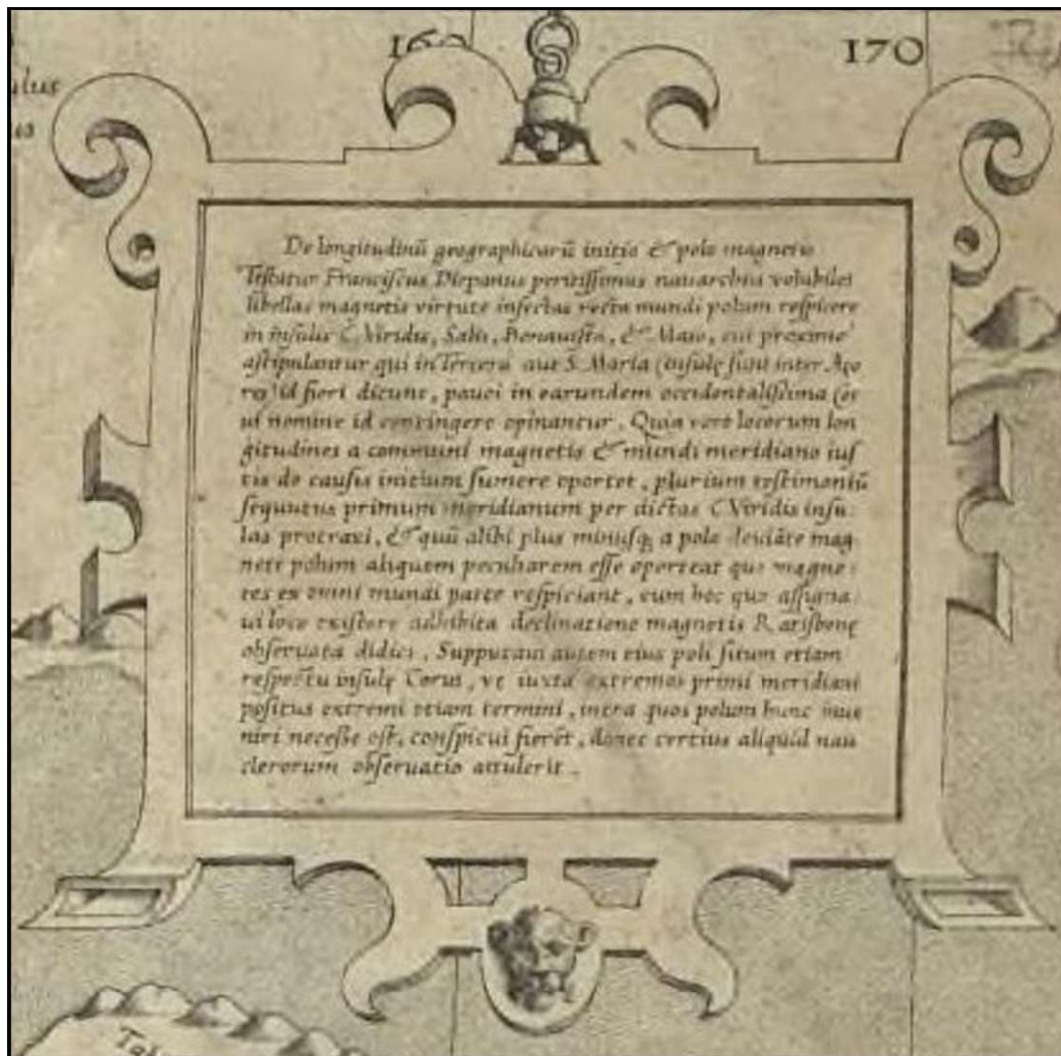 160
170
ulus
De longitudinū geographicarū initio & polo magnetis
Testatur Franciscus Diepanus peritissimus nauarchus volubiles
libellas magnetis virtute infectas recta mundi polum respicere
in insulis C. Viridis, Salis, Bonauista, & Maio, cui proxime
astipulantur qui in Tercera aut S. Maria (insulę sunt inter Aço
res) id fieri dicunt, pauci in earundem occidentalissima Cor
ui nomine id contingere opinantur. Quia vero locorum lon
gitudines a communi magnetis & mundi meridiano ius
tis de causis initium sumere oportet, plurium testimoniū
sequutus primum meridianum per dictas C. Viridis insu
las protraxi, & quū alibi plus minusq; a polo deuiāte mag
nete polum aliquem peculiarem esse oporteat quo magne
tes ex omni mundi parte respiciant, eum hoc quo assigna
ui loco existere adhibita declinatione magnetis Ratisbonę
obseruata didici. Supputaui autem eius poli situm etiam
respectu insulę Corui, vt iuxta extremos primi meridiani
positus extremi etiam termini, intra quos polum hunc inue
niri necesse est, conspicui fierēt, donec certius aliquid nau
clerorum obseruatio attulerit.